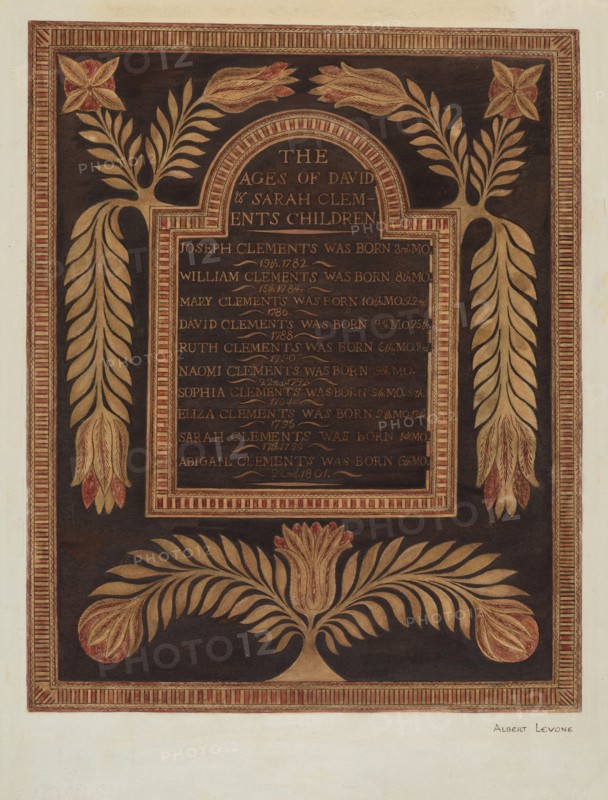 THE
AGES OF DAVID
& SARAH CLEM-
ENTS CHILDREN
JOSEPH CLEMENTS WAS BORN 3rd MO.
19th. 1782.
WILLIAM CLEMENTS WAS BORN 8th MO.
15th. 1784.
MARY CLEMENTS WAS BORN 10th MO. 22nd
1786.
DAVID CLEMENTS WAS BORN MO. 25th.
1788.
RUTH CLEMENTS WAS BORN MO.
1790
NAOMI CLEMENTS WAS BORN MO.
22nd. 1792.
SOPHIA CLEMENTS WAS BORN MO.
1794
ELIZA CLEMENTS WAS BORN 9th MO.
1796
SARAH CLEMENTS WAS BORN MO.
ABIGAIL CLEMENTS WAS BORN 6th MO.
1801.
ALBERT LEVONE
PHOTO12